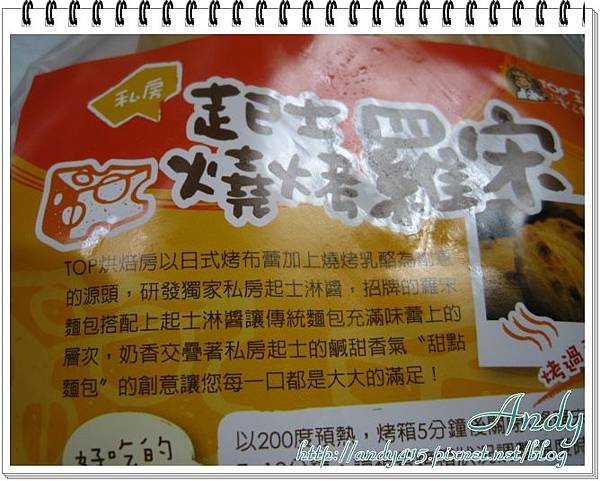 私房
起士
燒烤羅宋
TOP
TOP烘焙房以日式烤布蕾加上燒烤乳酪為創意
的源頭，研發獨家私房起士淋醬，招牌的羅宋
麵包搭配上起士淋醬讓傳統麵包充滿味蕾上的
層次，奶香交疊著私房起士的鹹甜香氣〝甜點
麵包〞的創意讓您每一口都是大大的滿足！
烤過
好吃的
以200度預熱，烤箱5分鐘後
Andy
http://andy415.pixnet.net/blog